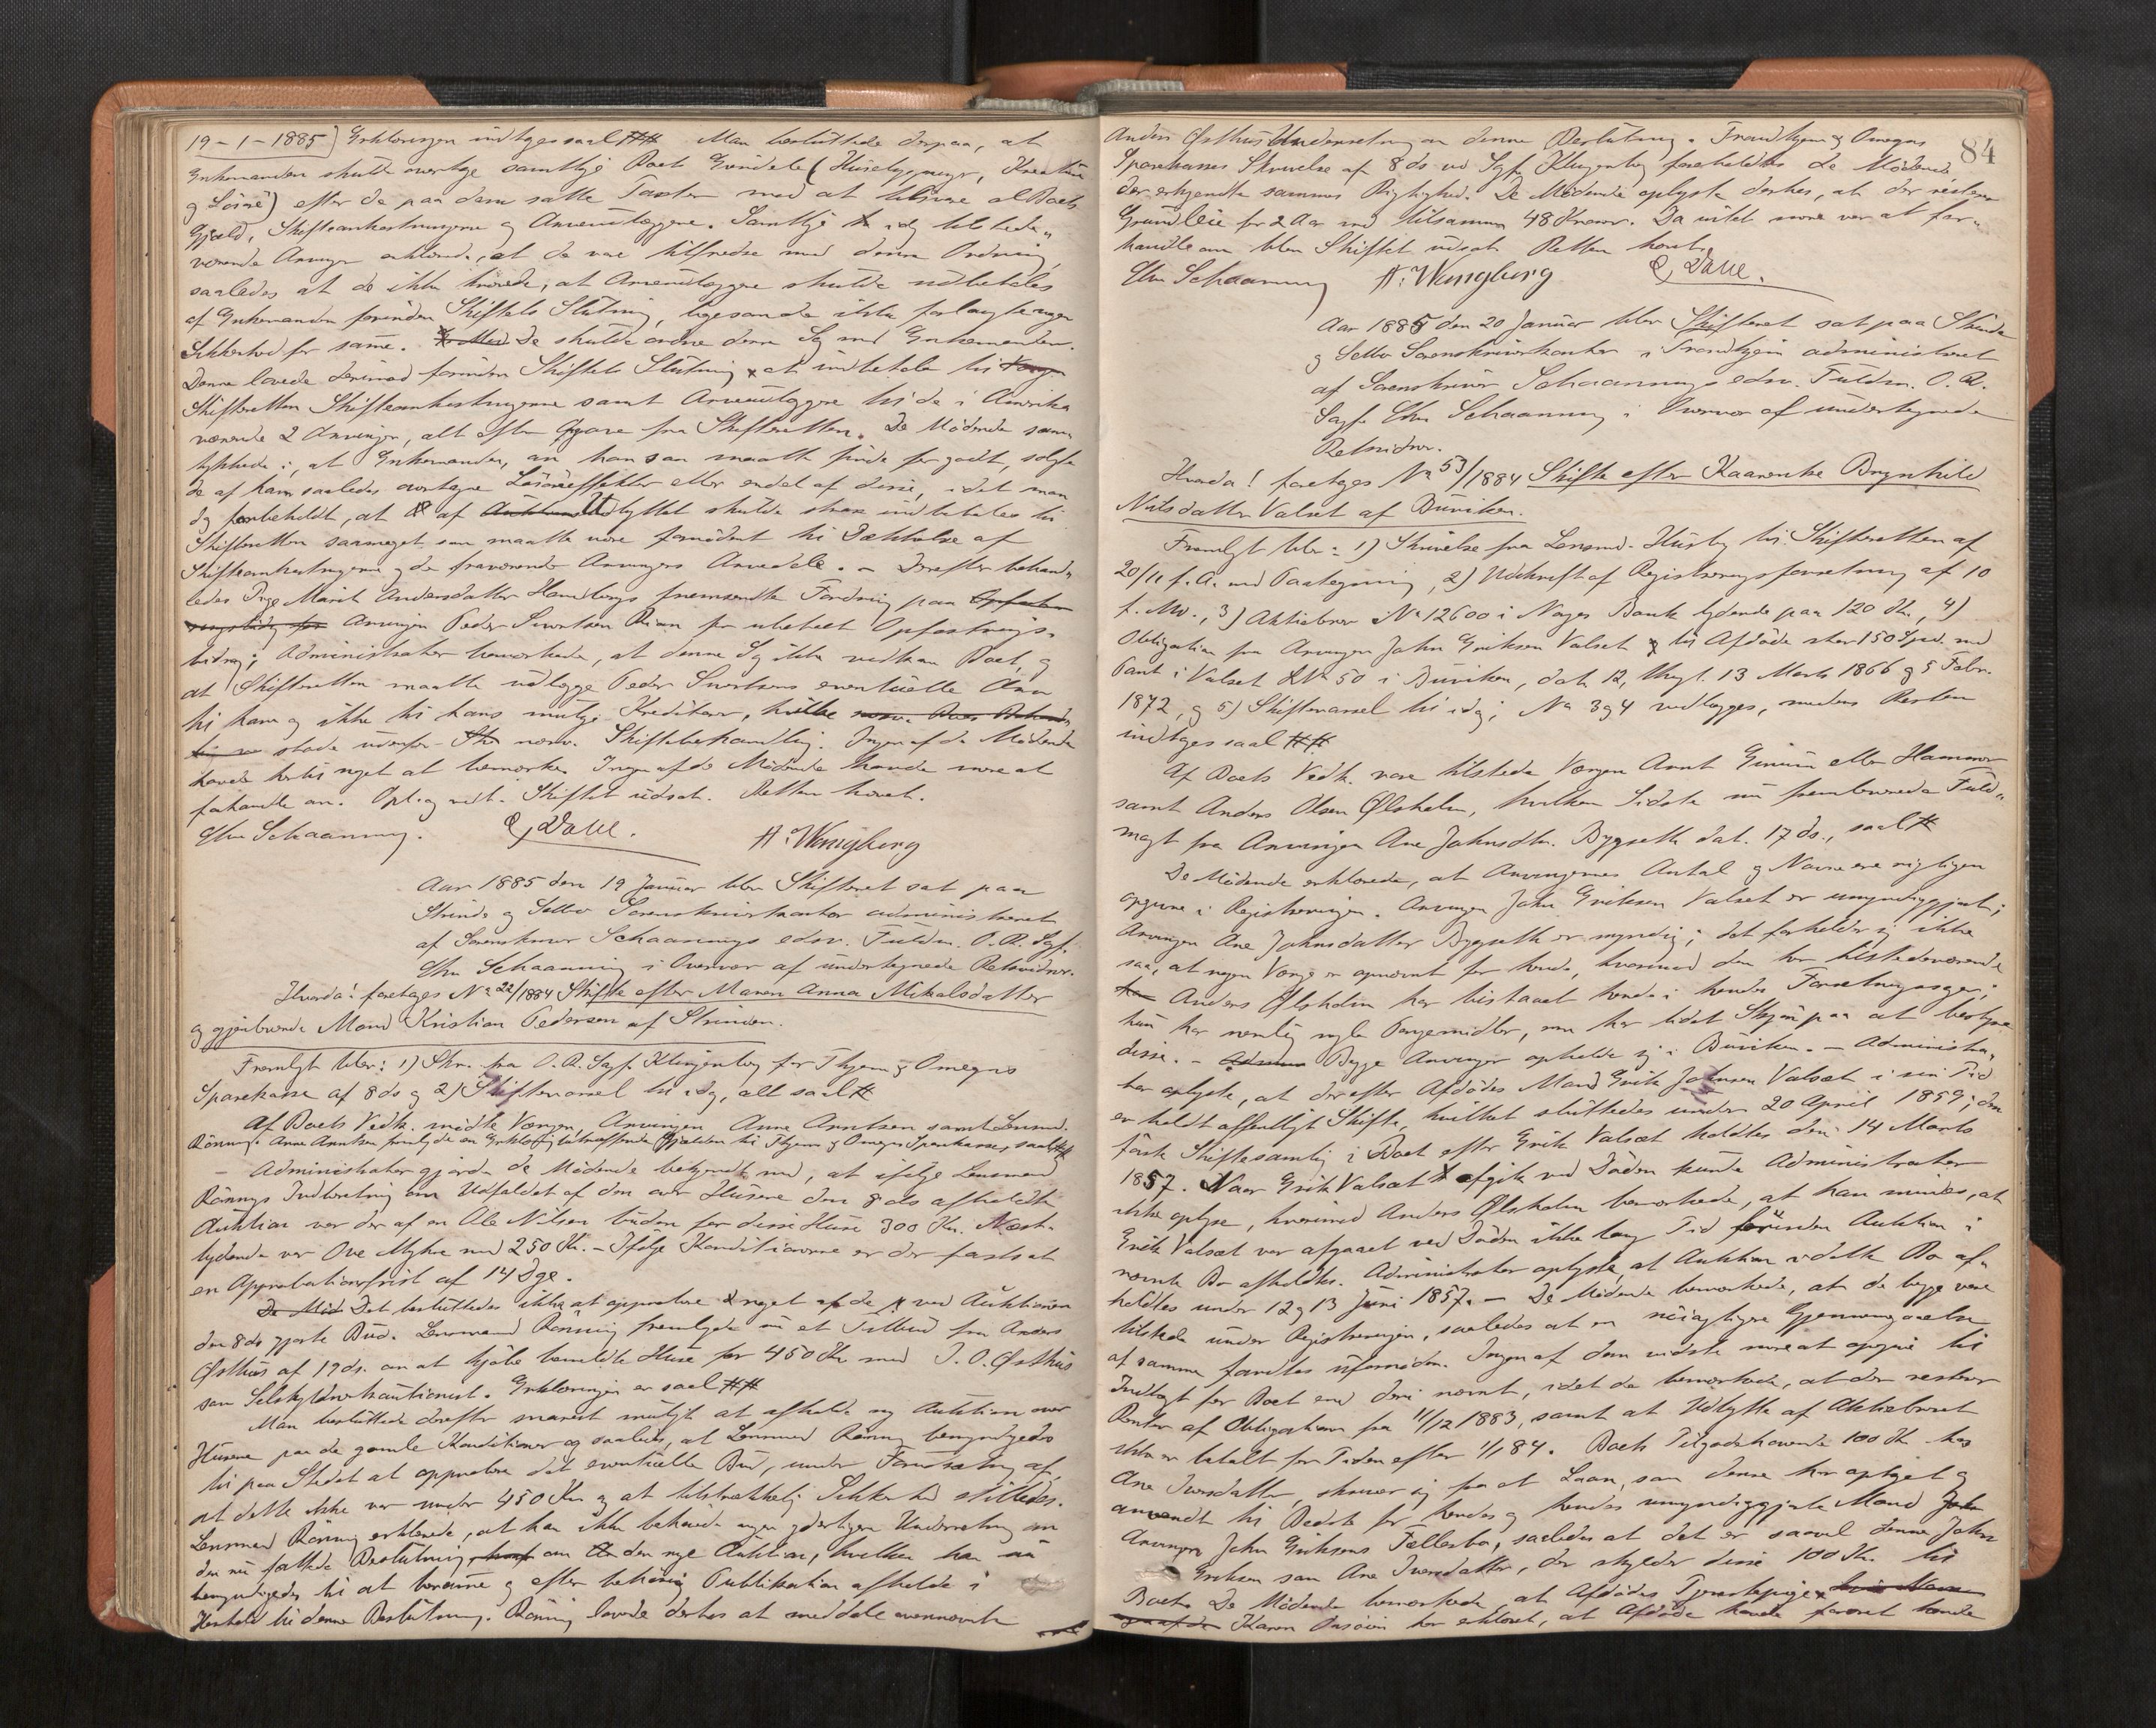 19-1-1885) Erklæringen indtages saal ##. Man besluttede derpaa, at
Enkemanden skulde overtage samtlige Boets Eiendele (Huusebygninger, Kreature
og Løsøre) efter de paa dem satte Taxter mod at tilsvare al Boets
Gjæld, Skifteomkostningerne og Arveudlæggene. Samtlige idag tilstede„
værende Arvinger erklærede, at de vare tilfredse med denne Ordning,
saaledes at de ikke krævede, at Arveudlæggene skulde udbetales
af Enkemanden forinden Skiftets Slutning, ligesom de ikke forlangte nogen
Sikkerhed for samme. De skulde ordne denne Sag med Enkemanden.
Denne lovede derimod forinden Skiftets Slutning at indbetale til
Skifteretten Skifteomkostningerne samt Arveudlæggene til de i Amerika
værende 2 Arvinger, alt efter Opgave fra Skifteretten. De Mødende sam„
tykkede i, at Enkemanden, om han saa maatte finde for godt, solgte
de af ham saaledes overtagne Løsøreeffekter eller endel af disse, idet man
dog forbeholdt, at af Udbyttet skulde strax indbetales til
Skifteretten saameget, som maatte være fornødent til Dækkelse af
Skifteomkostningerne og de fraværende Arvingers Arvedele. - Derefter behand„
ledes Pige Marit Andersdatter Hambergs fremsendte Fordring paa
Arvingen Peder Sivertsen Rian for ubetalt Opfostrings„
bidrag; Administrator bemærkede, at denne Sag ikke vedkom Boet, og
at Skifteretten maatte udlægge Peder Sivertsens eventuelle Arv
til ham og ikke til hans mulige Kreditorer, hvilke
stode udenfor nærv. Skiftebehandling. Ingen af de Mødende
havde hertil noget at bemærke. Ingen af de Mødende havde mere at
forhandle om. Opl. og vedt. Skiftet udsat. Retten hævet.
Chr Schaanning. E. Dahl. A. Wengberg
Aar 1885 den 19 Januar blev Skifteret sat paa
Strinde og Selbo Sorenskriverkontor administreret
af Sorenskriver Schaannings edsv. Fuldm. O. R. Sagf.
Chr Schaanning i Overvær af undertegnede Retsvidner.
Hvorda! foretoges No 22/1884 Skifte efter Maren Anna Mikalsdatter
og gjenlevende Mand Kristian Pedersen af Strinden.
Fremlagt blev: 1) Skr. fra O. R. Sagf. Klingenberg for Thjem og Omegns
Sparekasse af 8 ds og 2) Skiftevarsel til idag, alt saal #
Af Boets Vedk. mødte Værgen, Arvingen Anne Arntsen samt Lensmd.
Rønning. Anne Arntsen fremlagde en Erklæring betræffende Gjælden til Thjem og Omegns Sparekasse, saal ##
- Administrator gjorde de Mødende bekjendt med, at ifølge Lensmand
Rønnings Indberetning om Udfaldet af den over Husene den 8 ds afholdte
Auktion var der af en Ole Nilsen buden for disse Huse 300 Kr. Næst„
bydende var Ove Myhre med 250 Kr. - Ifølge Konditionerne er der fastsat
en Approbationsfrist af 14 Dge.
Det besluttedes ikke at approbere noget af de ved Auktionen
den 8 ds gjorte Bud. Lensmand Rønning fremlagde nu et Tilbud fra Anders
Østhus af 19 ds. om at kjøbe bemeldte Huse for 450 Kr med J. O. Østhus
som Selvskyldnerkautionist. Erklæringen er saal ##
Man besluttede derefter snarest muligt at afholde ny Auktion over
Husene paa de gamle Konditioner og saaledes, at Lensmand Rønning bemyndigedes
til paa Stedet at approbere det eventuelle Bud, under Forudsætning af
at dette ikke var under 450 Kr og at tilstrækkelig Sikkerhed stilledes.
Lensmand Rønning erklærede, at han ikke behøvede nogen yderligere Underretning om
den nu fattede Beslutning om den nye Auktion, hvilken han nu
bemyndigedes til at beramme og efter behørig Publikation afholde i
Henhold til denne Beslutning. Rønning lovede derhos at meddele ovennævnte
84
Anders Østhus Underretning om denne Beslutning. Trondhjems og Omegns
Sparekasses Skrivelse af 8 ds ved Sagf. Klingenberg foreholdtes de Mødende,
der erkjendte sammes Rigtighed. De Mødende oplyste derhos, at der resterer
Grundleie for 2 Aar med tilsammen 48 Kroner. Da intet mere var at for„
handle om blev Skiftet udsat. Retten hævet.
Chr Schaanning A. Wengberg E. Dahl.
Aar 1885 den 20 Januar blev Skifteret sat paa Strinde
og Selbo Sorenskriverkontor i Trondhjem administreret
af Sorenskriver Schaannings edsv. Fuldm. O. R.
Sagf. Chr Schaanning i Overvær af undertegnede
Retsvidner.
Hvorda! foretoges No 53/1884 Skifte efter Kaarenke Brynhild
Nilsdatter Valset af Buviken.
Fremlagt blev: 1) Skrivelse fra Lensmd. Husby til Skifteretten af
20/11 f. A. med Paategning, 2) Udskrift af Registreringsforretning af 10
f. Md., 3) Aktiebrev No 12600 i Norges Bank lydende paa 120 Kr, 4)
Obligation fra Arvingen John Eriksen Valset til Afdøde stor 150 Spd. med
Pant i Valset No 50 i Buviken, dat. 12, thgl. 13 Marts 1866 og 5 Febr.
1872, og 5) Skiftevarsel til idag; No 3 og 4 vedlægges, medens Resten
indtages saal ##
Af Boets Vedk. vare tilstede Værgen Arnt Grinni eller Hammer
samt Anders Olsen Ølsholm, hvilken Sidste nu fremleverede Fuld„
magt fra Arvingen Ane Johnsdtr. Bygseth dat. 17 ds., saal #
De Mødende erklærede, at Arvingernes Antal og Navne ere rigtigen
opgivne i Registreringen. Arvingen John Eriksen Valset er umyndiggjort;
Arvingen Ane Johnsdatter Bygseth er myndig; det forholder sig ikke
saa, at nogen Værge er opnævnt for hende, hvorimod den her tilstedeværende
Anders Ølsholm har bistaaet hende i hendes Forretningssager;
hun har nemlig nogle Pengemidler, men har lidet Skjøn paa at bestyre
disse. - Begge Arvinger opholde sig i Buviken. - Administra„
tor oplyste, at der efter Afdødes Mand Erik Johnsen Valset i sin Tid
er holdt offentligt Skifte, hvilket sluttedes under 20 April 1859; den
første Skiftesamling i Boet efter Erik Valset holdtes den 14 Marts
1857. Naar Erik Valset afgik ved Døden kunde Administrator
ikke oplyse, hvorimod Anders Ølsholm bemærkede, at han mindes, at
Erik Valset var afgaaet ved Døden ikke lang Tid førinden Auktion i
nævnte Bo afholdtes. Administrator oplyste, at Auktion i dette Bo af„
holdtes under 12 og 13 Juni 1857. - De Mødende bemærkede, at de begge vare
tilstede under Registreringen, saaledes at en nøiagtigere Gjennemgaaelse
af samme fandtes ufornøden. Ingen af dem vidste mere at opgive til
Indtægt for Boet end deri nævnt, idet de bemærkede, at der resterer
Renter af Obligationen fra 11/12 1883, samt at Udbytte af Aktiebrevet
ikke er betalt for Tiden efter 1/1 84. Boets Tilgodehavende 100 Kr hos
Ane Iversdatter, skriver sig fra et Laan, som denne har optaget og
anvendt til Bedste for hendes og hendes umyndiggjorte Mand
Arvingen John Eriksens Fællesbo, saaledes at det er saavel denne John
Eriksen som Ane Iversdatter, der skylder disse 100 Kr. til
Boet. De Mødende bemærkede, at Afdødes Tjenestepige
Karen Onsøien har erklæret, at Afdøde havde foræret hende